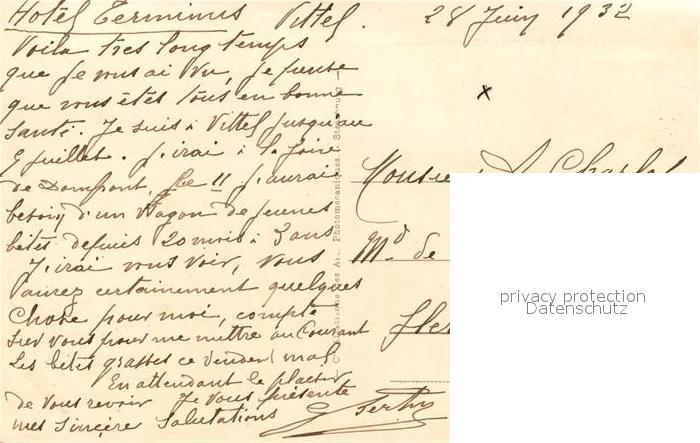 Hotel Terminus Vittel. 28 Juin 1932
Voila tres long temps
que je vous ai vu, je pense
que vous êtes tous en bonne
santé. Je suis à Vittel jusqu'au
9 juillet. J'irai à la foire
de Domfront, le 11 j'aurais
besoin d'un Wagon de jeunes
bêtes depuis 20 mois à 3 ans
J'irai vous voir, vous
aurez certainement quelques
chose pour moi, compte
sur vous pour me mettre au courant
Les bêtes grasses ce vendent mal
En attendant le plaisir
de vous revoir Je vous présente
mes sincère salutations
Monsie
Md de
fle
privacy protection
Datenschutz